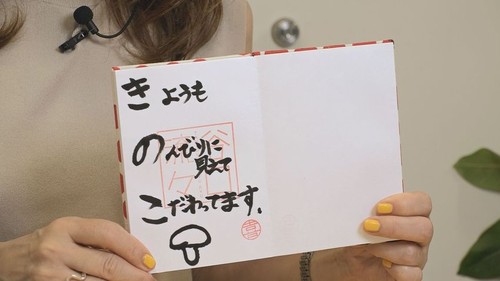 きょうも
のんびりに
見えて
こだわってます。